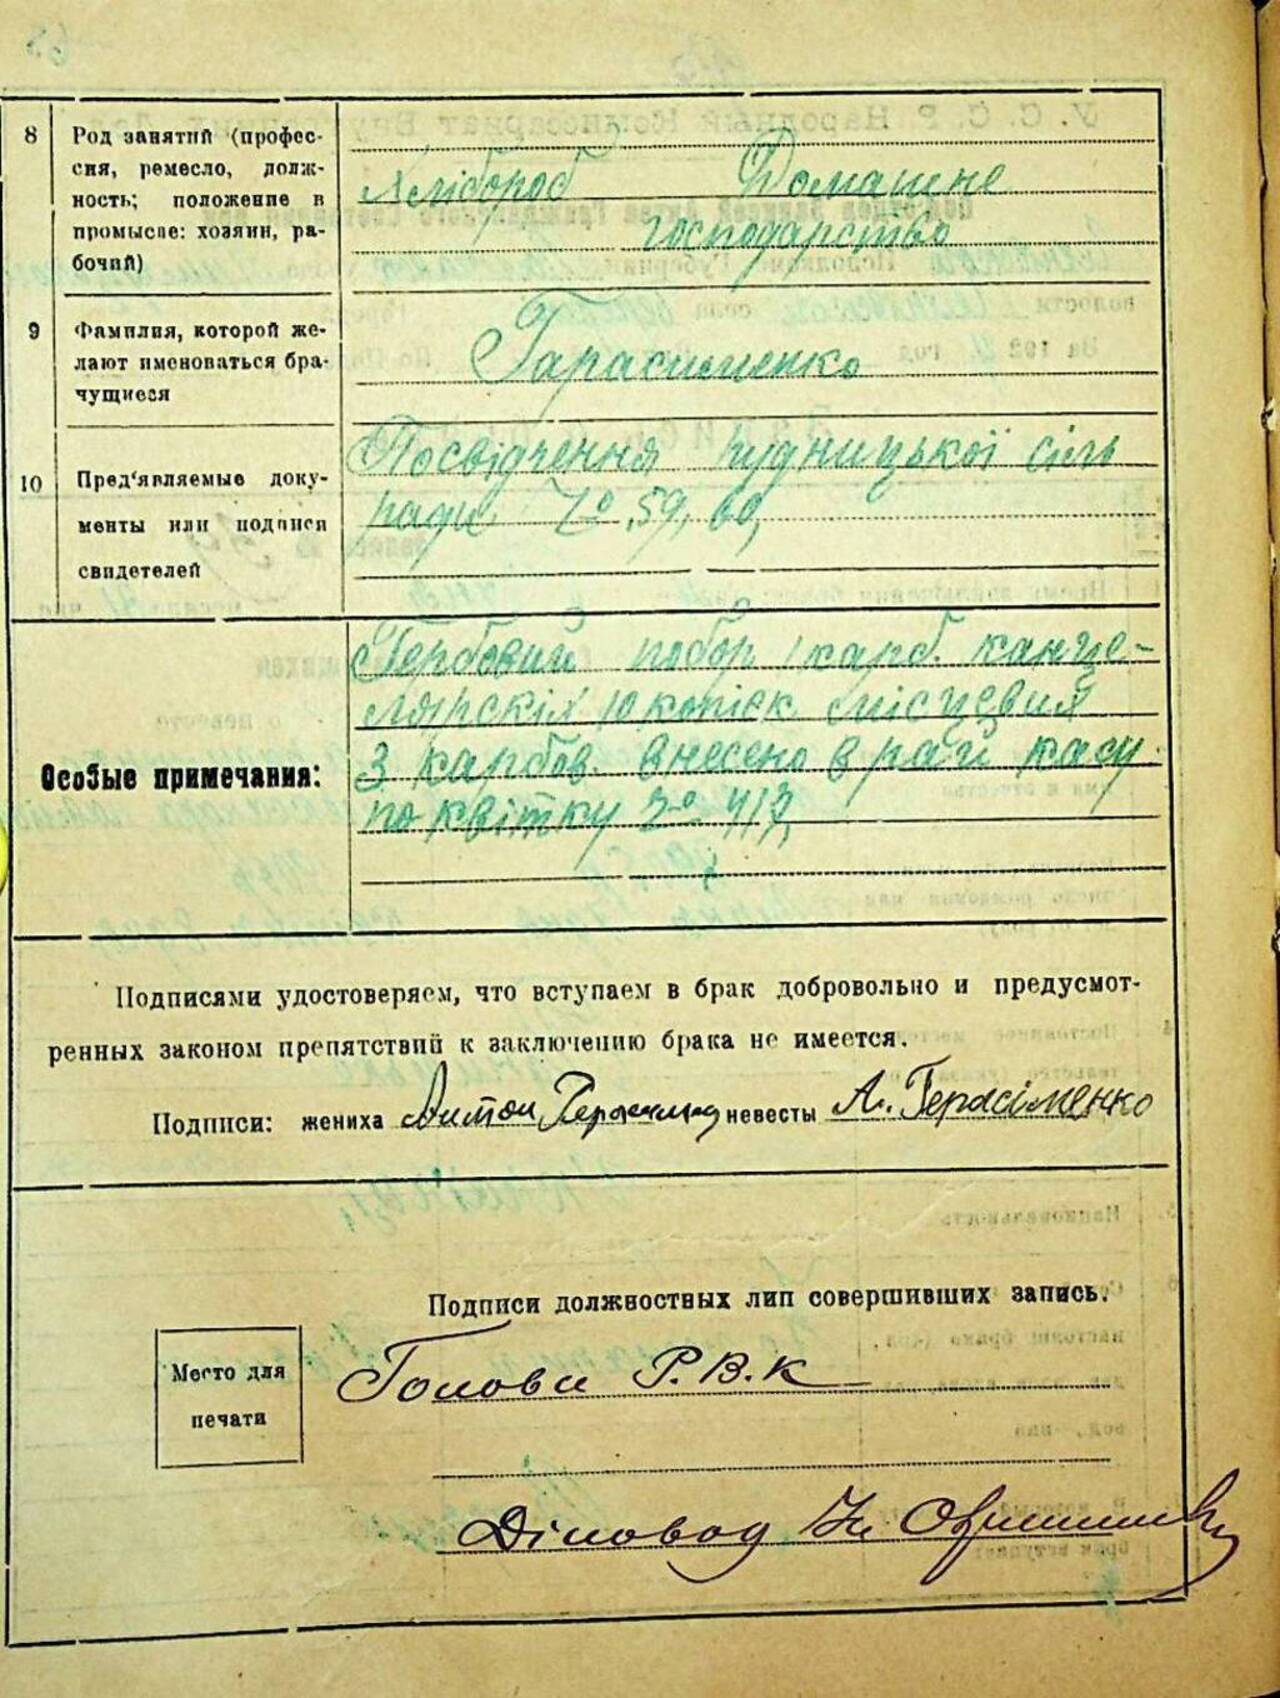 8 Род занятий (профессия, ремесло, должность; положение в промысле: хозяин, рабочий)
Хлібороб Домашнє
господарство
9 Фамилия, которой желают именоваться брачущиеся
Гарасименко
10 Пред'являемые документы или подписи свидетелей
Посвідчення Рудницької сіль
ради № 59, 60,
Особые примечания:
Гербовий побор 1 карб. канце-
лярскіх 10 копієк місцевия
3 карбов. внесено в рай касу
по квітку № 417,
Подписями удостоверяем, что вступаем в брак добровольно и предусмот-
ренных законом препятствий к заключению брака не имеется.
Подписи: жениха Антон невесты А. Герасіменко
Подписи должностных лиц совершивших запись.
Место для
печати
Голова Р.В.К
Діловод